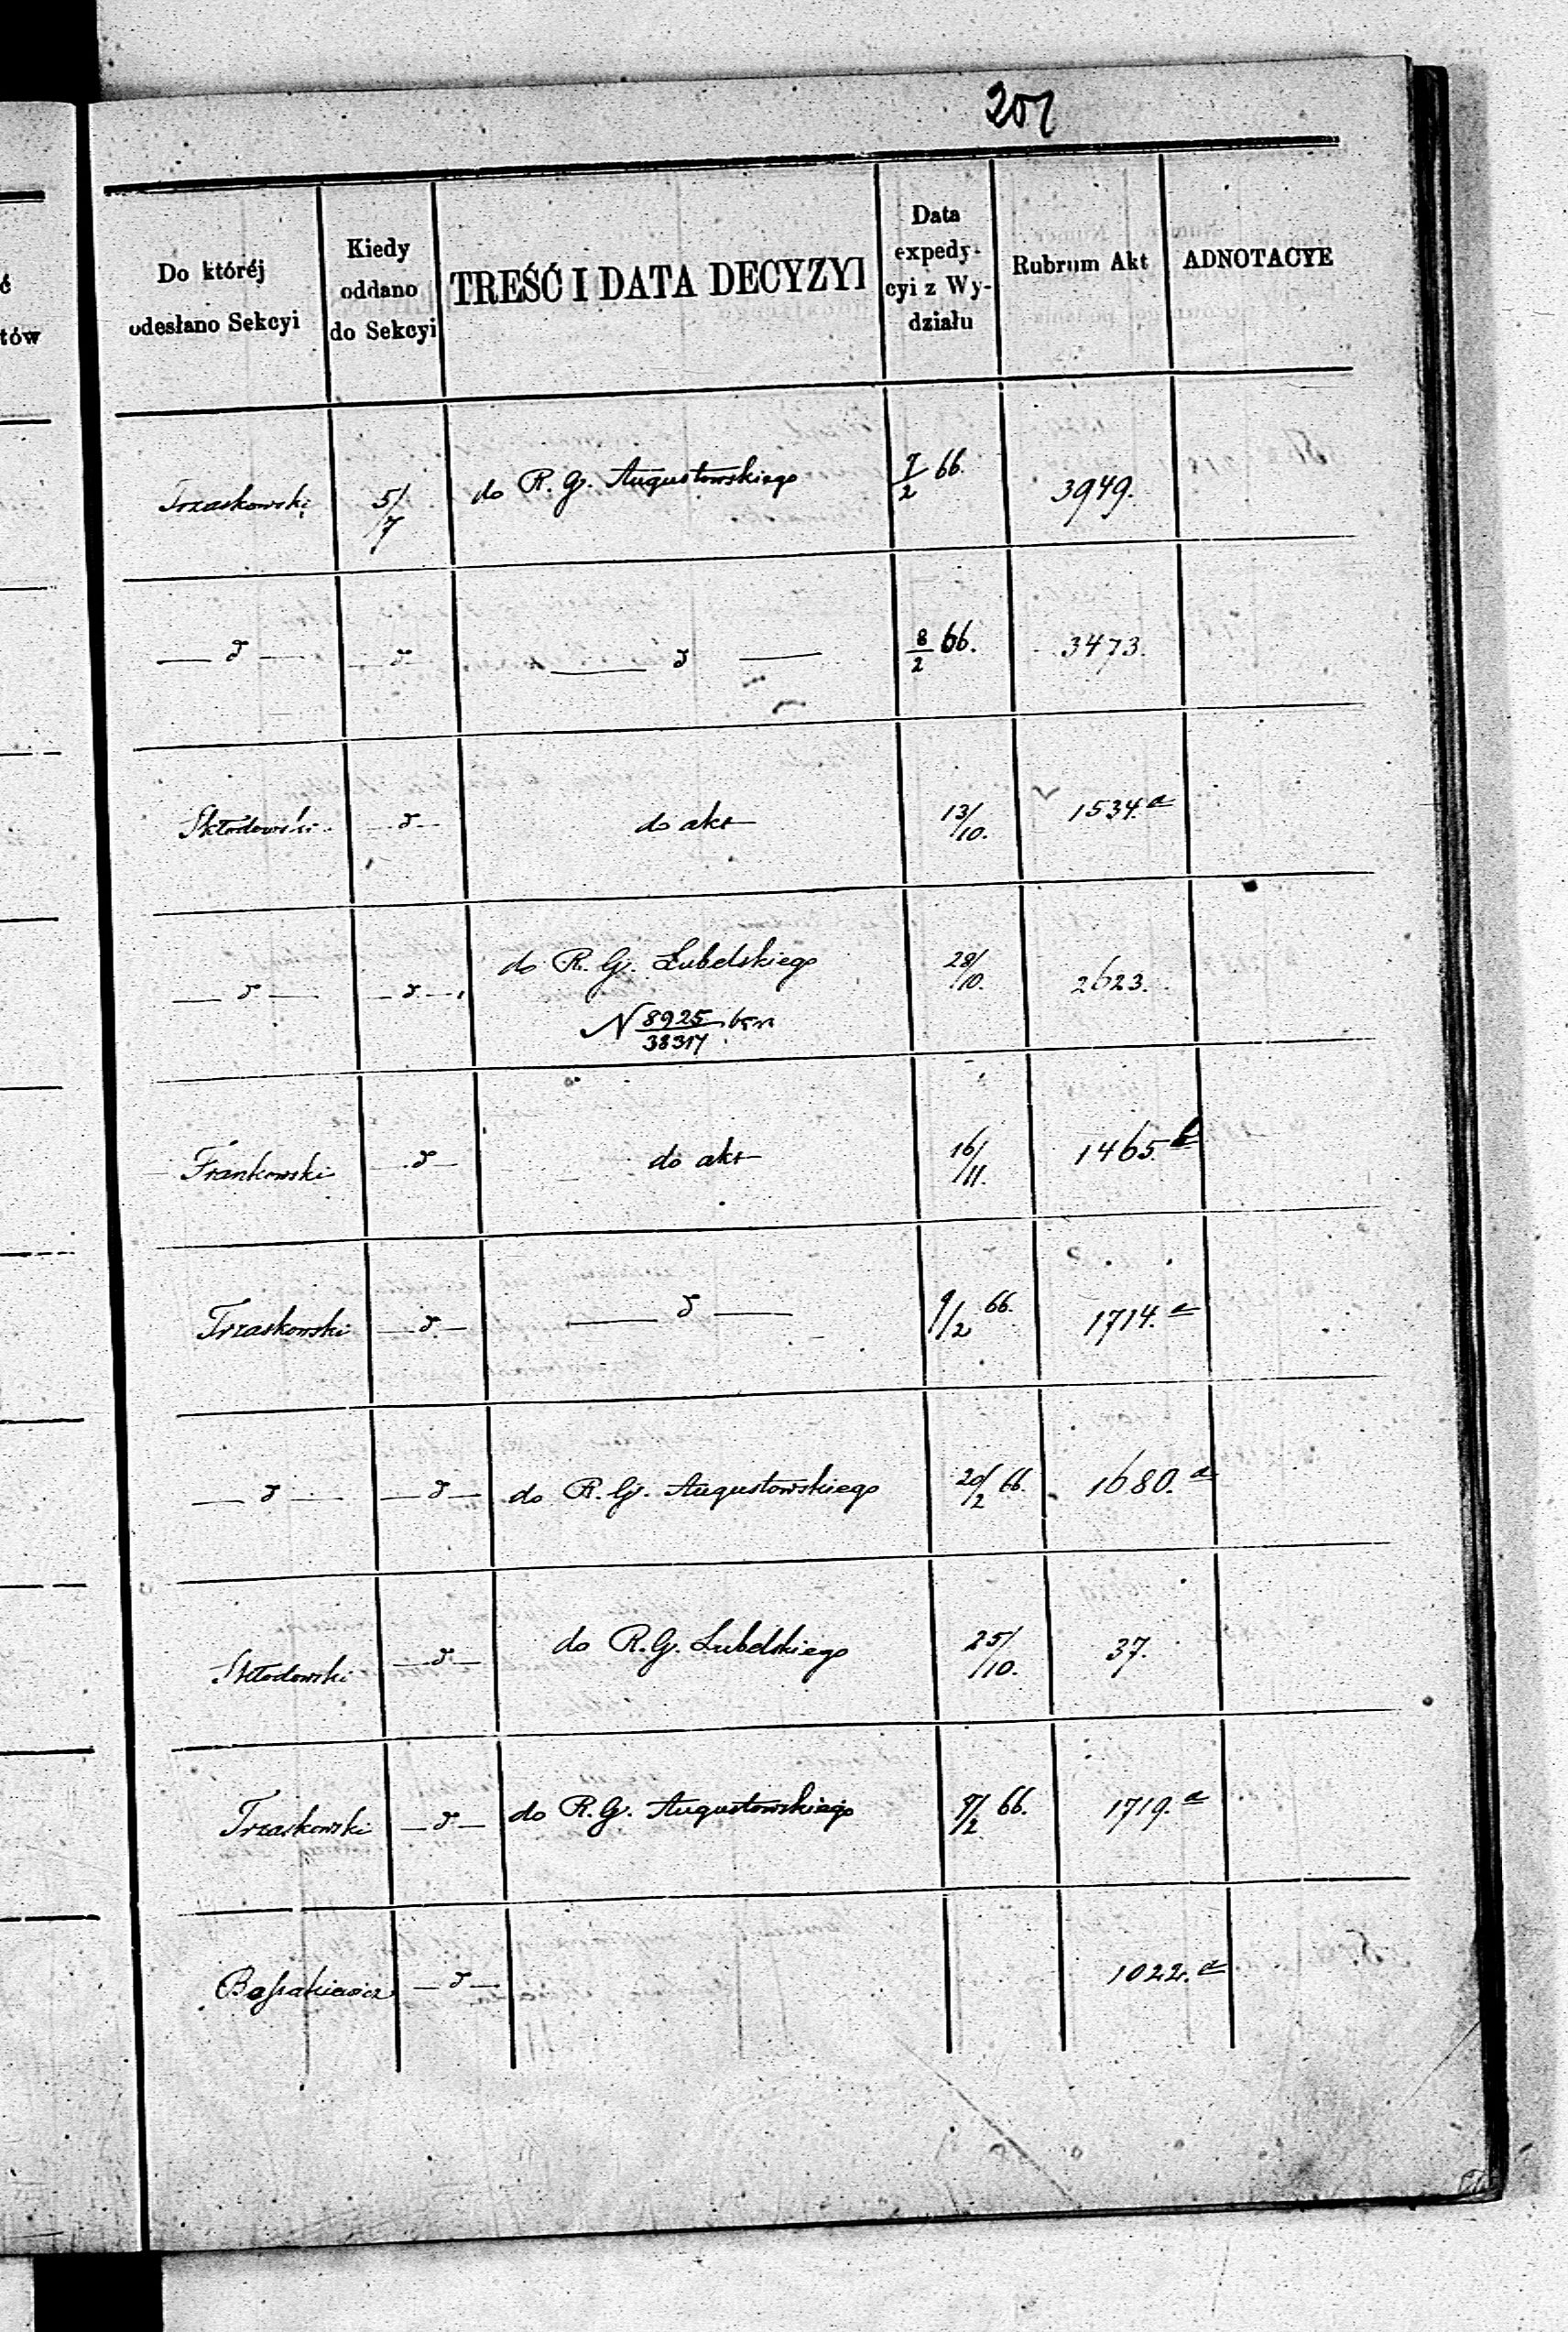 201
Do któréj odesłano Sekcyi | Kiedy oddano do Sekcyi | TREŚĆ I DATA DECYZYI | Data expedycyi z Wydziału | Rubrum Akt | ADNOTACYE
Trzaskowski | 5/7 | do R. G. Augustowskiego | 7/2 66. | 3949.
— d — | — d — | — d — | 8/2 66. | 3473.
Skłodowski | — d — | do akt | 13/10. | 1534.a
— d — | — d — | do R. G. Lubelskiego | 28/10. | 2623.
N 8925/38317
Frankowski | — d — | do akt | 16/11. | 1465.b
Trzaskowski | — d — | — d — | 9/2 66. | 1714.a
— d — | — d — | do R. G. Augustowskiego | 20/2 66. | 1680.a
Skłodowski | — d — | do R. G. Lubelskiego | 25/10. | 37.
Trzaskowski | — d — | do R. G. Augustowskiego | 9/2 66. | 1719.a
— d — | 1022.a
ć
tów